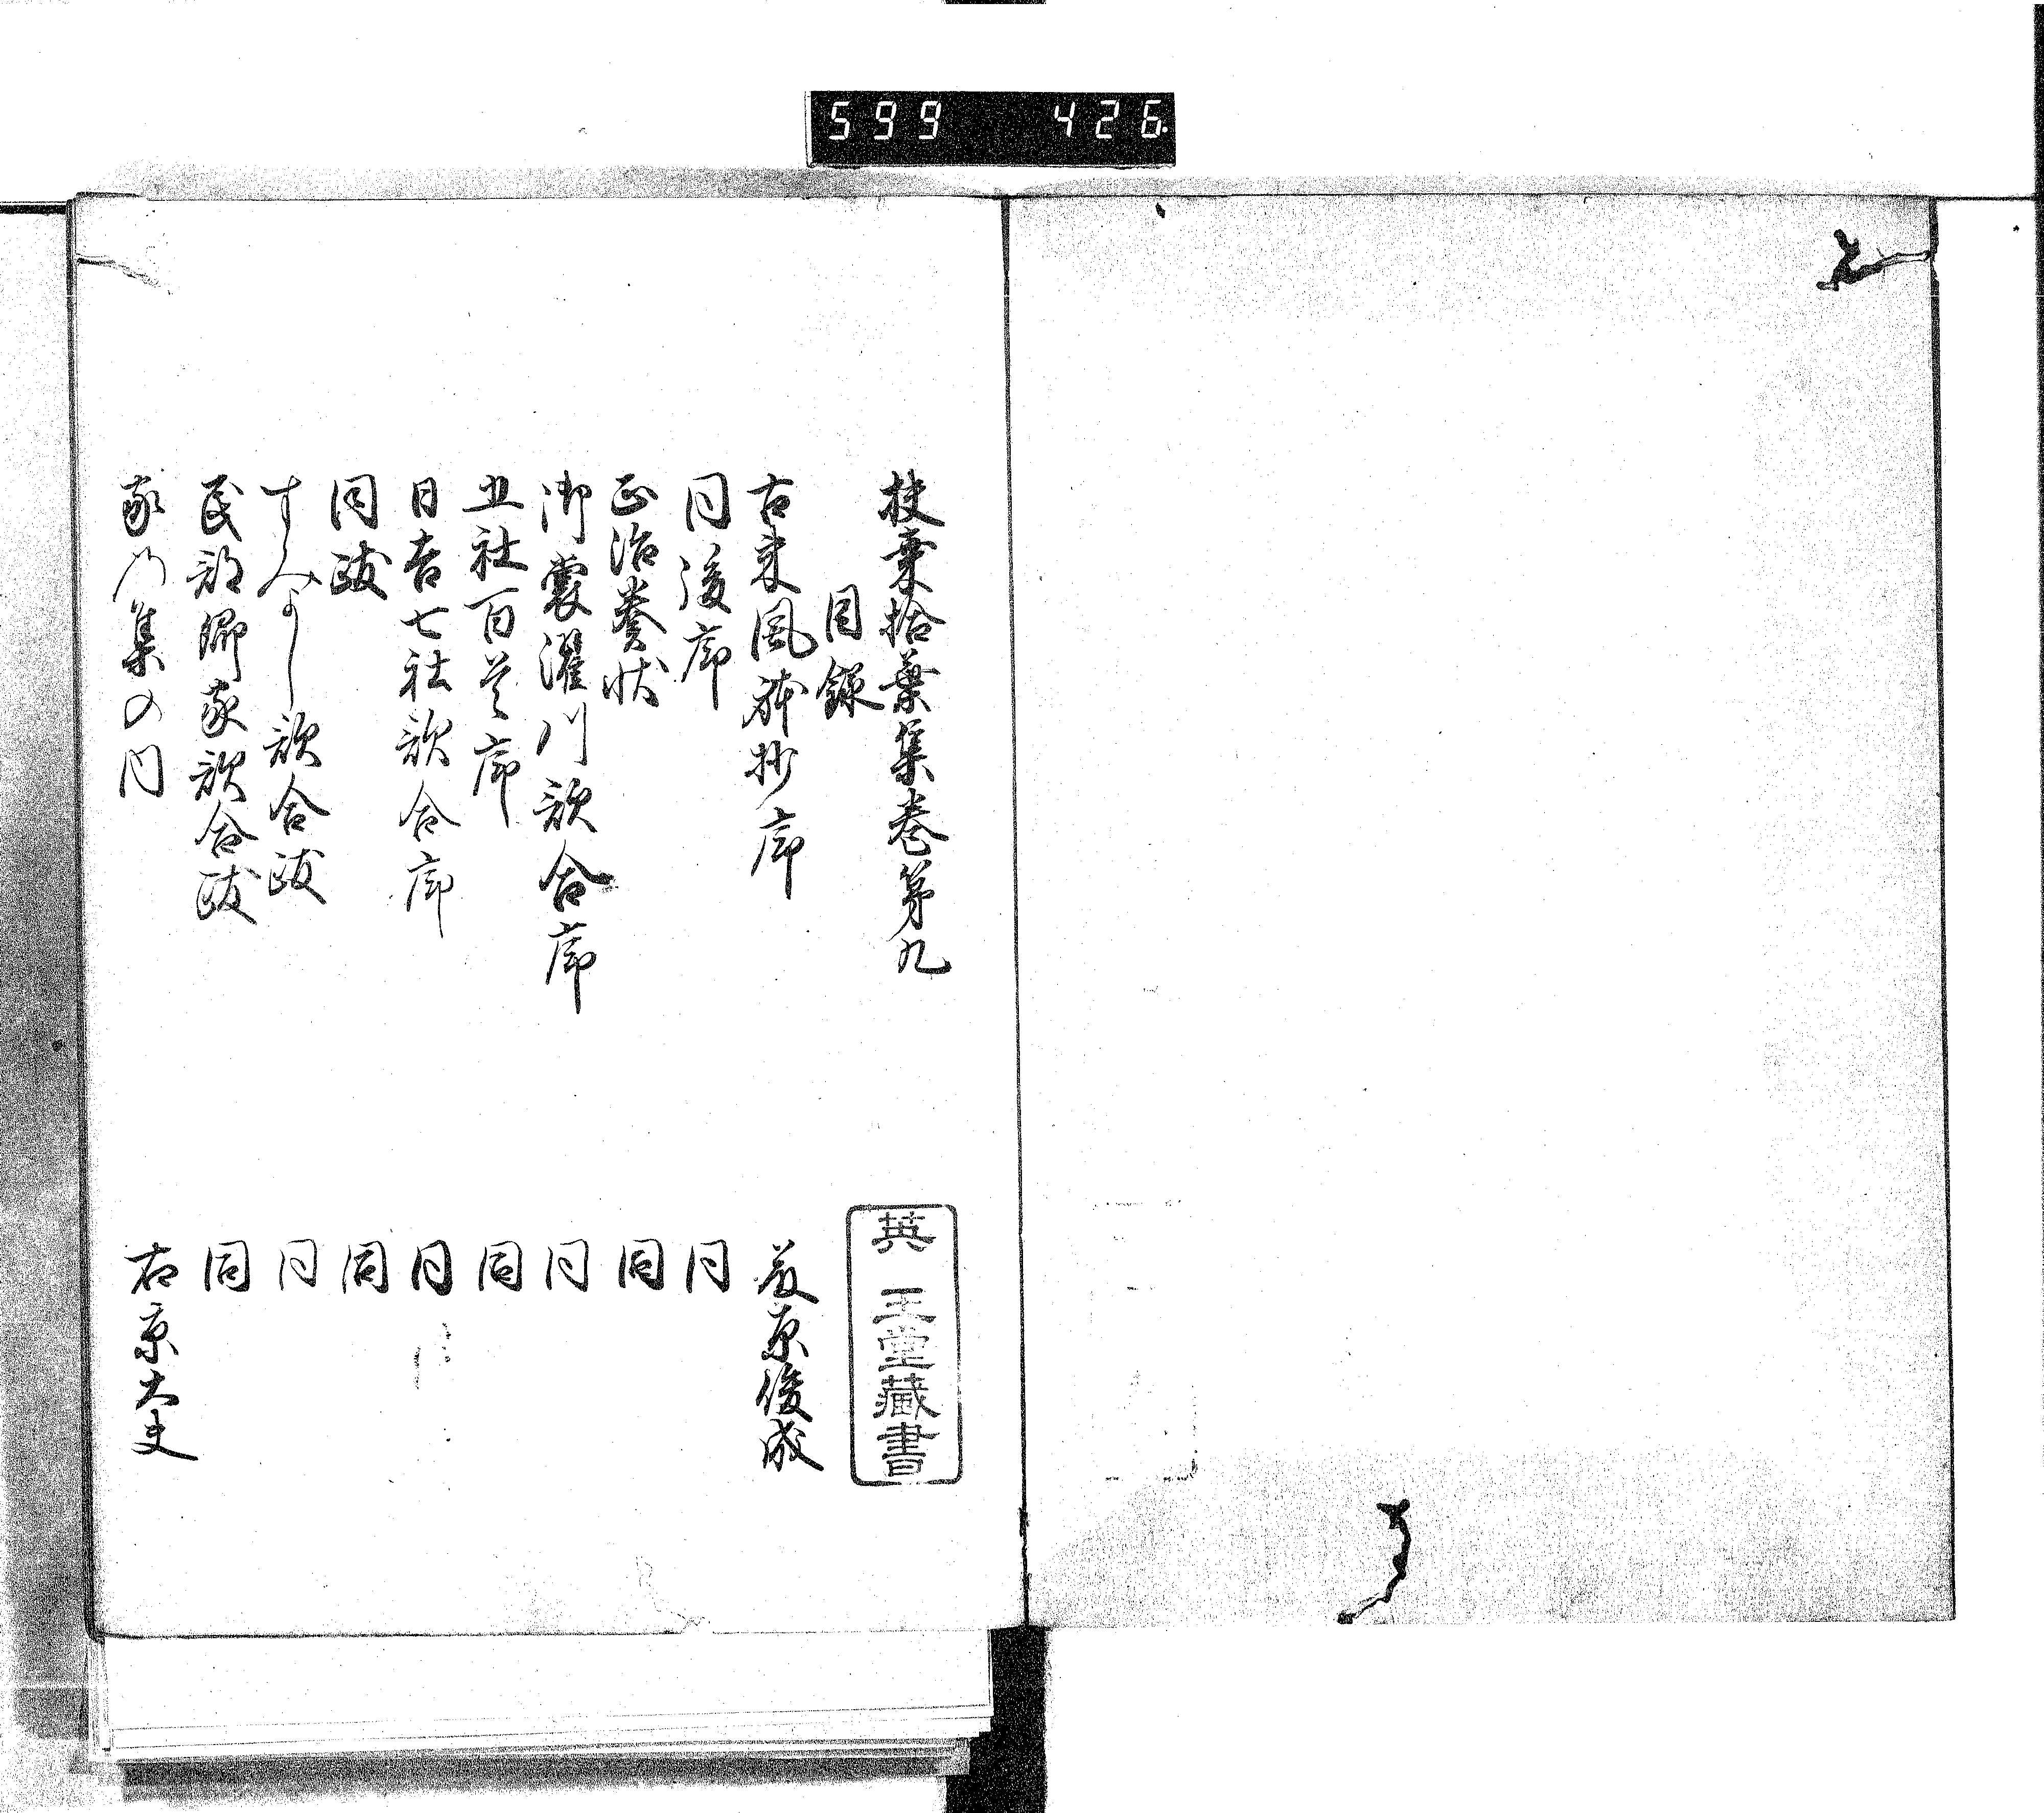 599 426.
扶桒拾葉集巻第九
目錄
古来風躰抄序　藤原俊成
同後序　同
正治奏状　同
御裳濯川歌合序　同
五社百首序　同
日吉七社歌合序　同
同跋　同
すみよし歌合跋　同
民部卿家歌合跋　同
家の集の内　右京大夫
英 王堂藏書